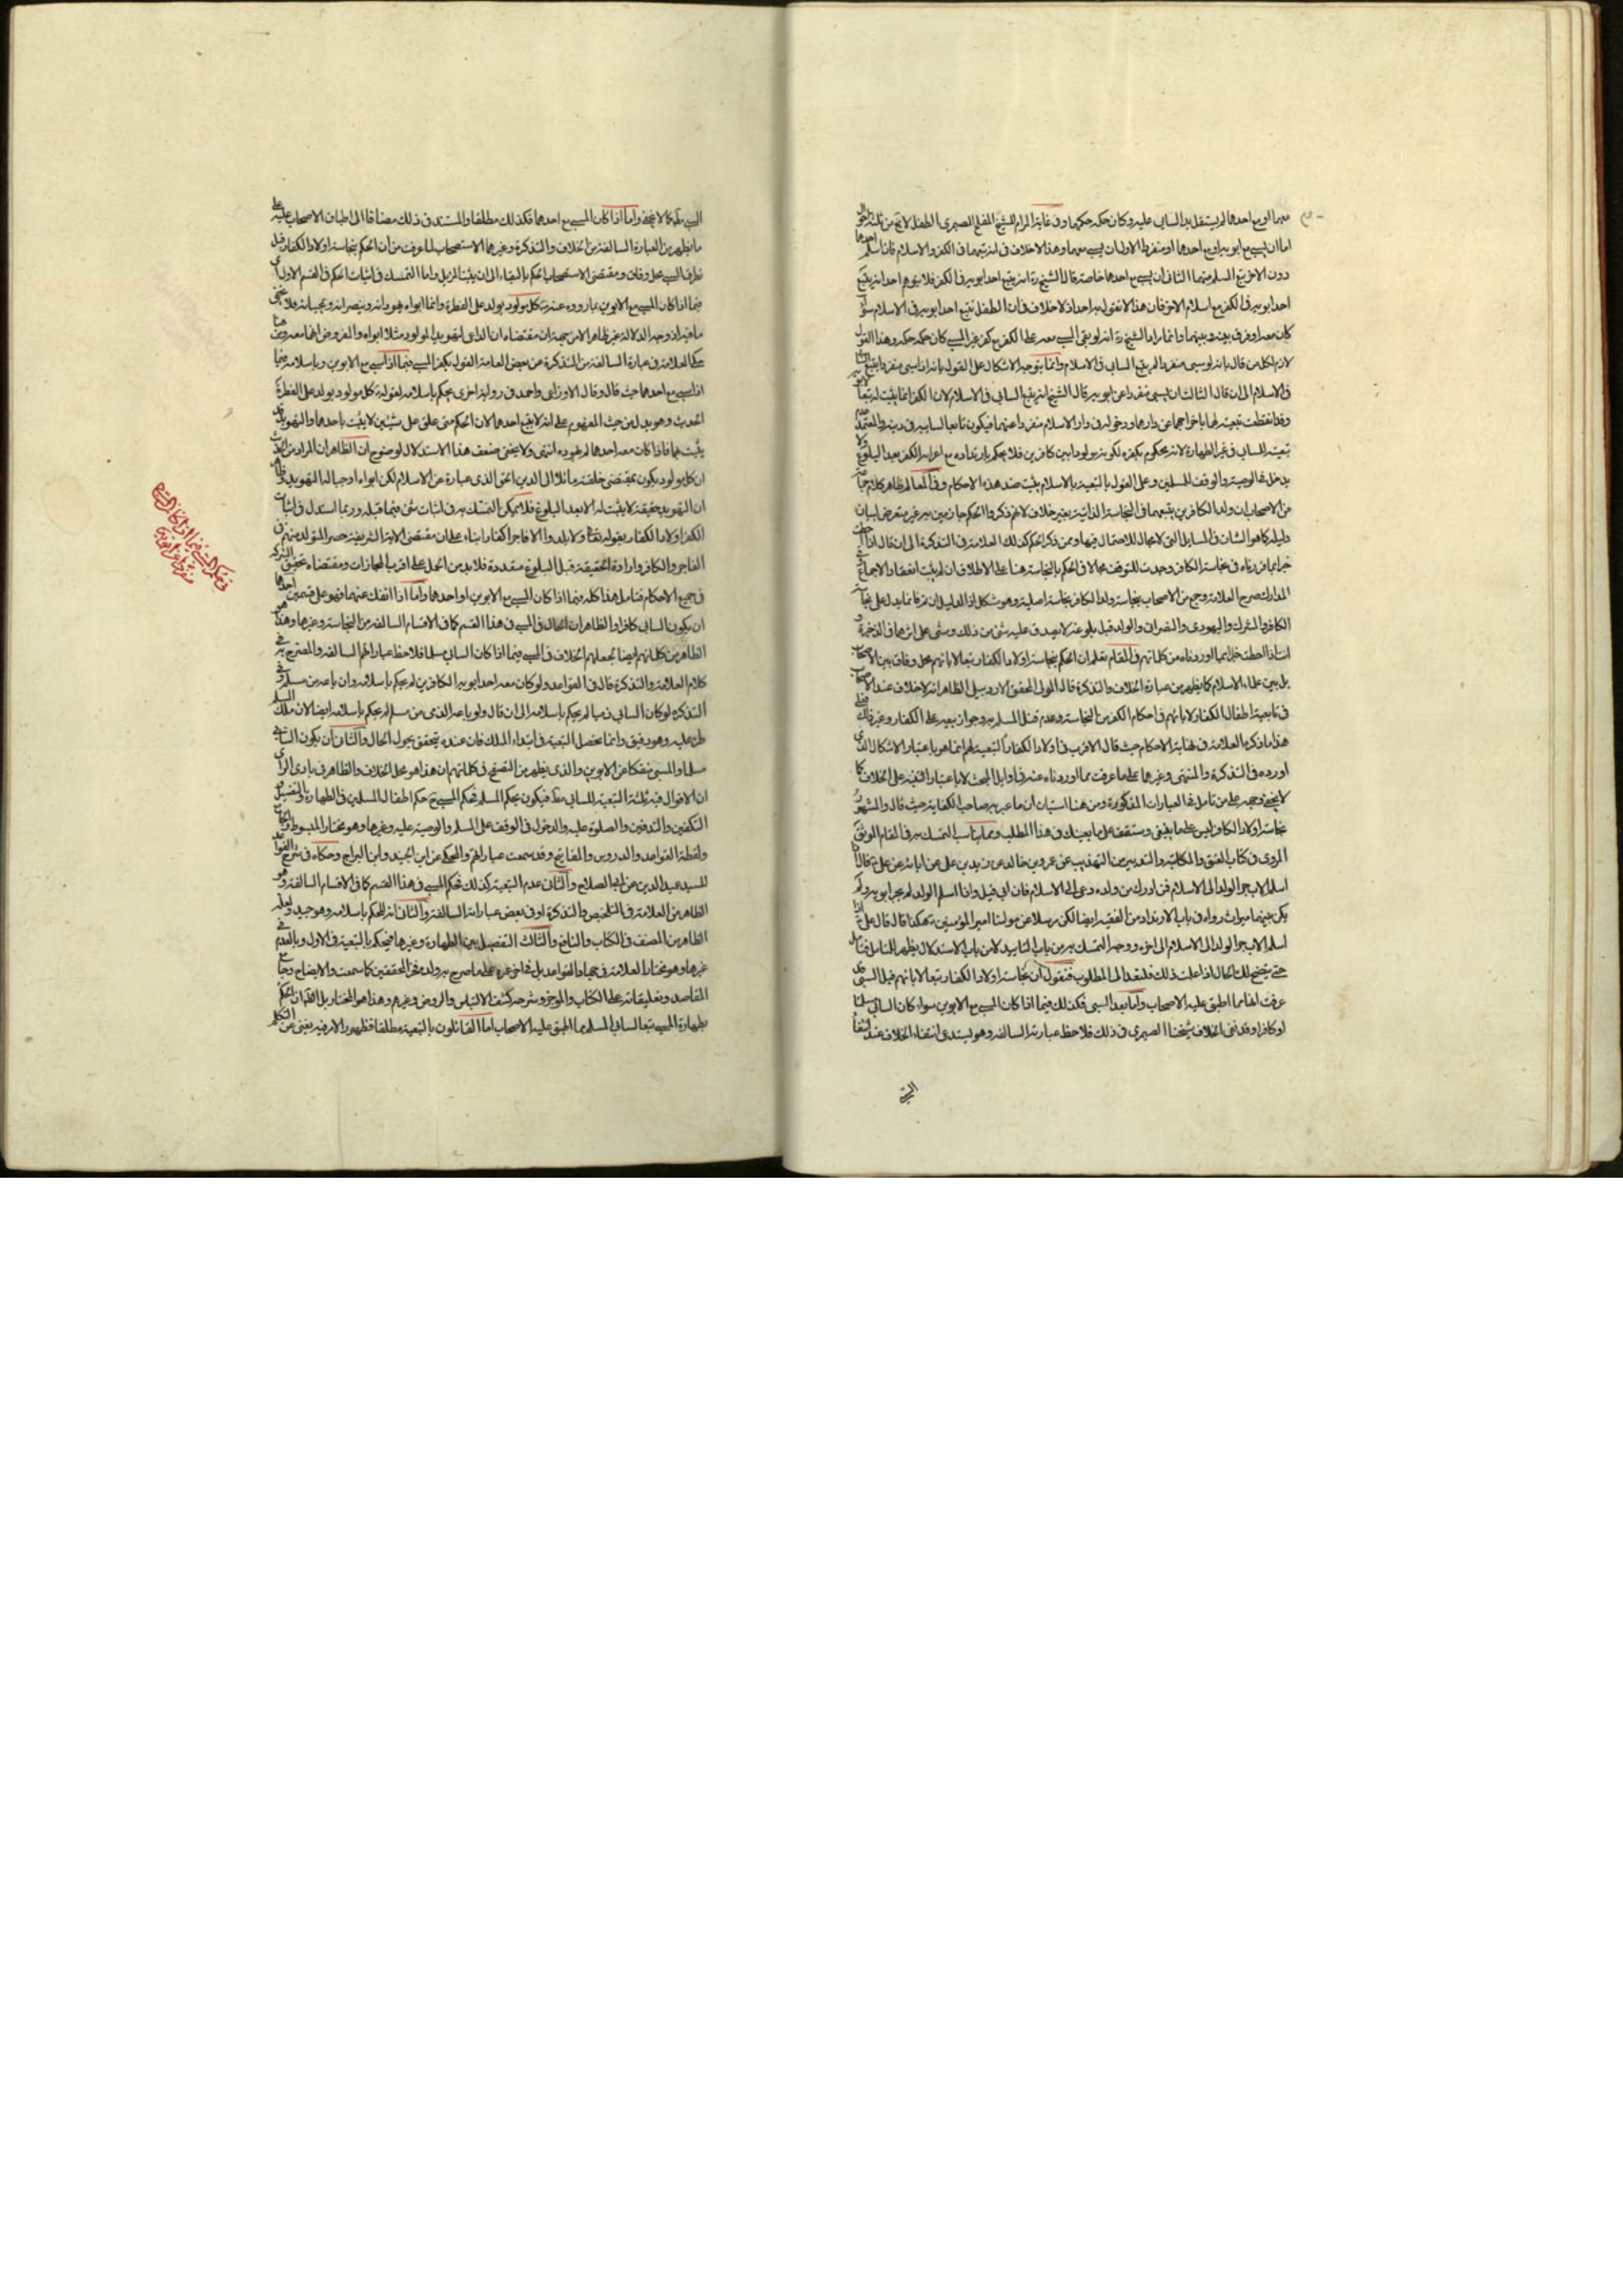 منهما او مع احدهما لم يستقل يد السابي عليه وكان حكمه حكمهما وفي غاية المرام للشيخ المفلح الصيمري الطفل لا يخ من ثلثة احوال
اما ان يسبى مع ابويه او مع احدهما او منفردا الاول ان يسبى معهما وهذا لا خلاف في انه يتبعهما في الكفر والاسلام فان اسلم احدهما
دون الاخر يتبع المسلم منهما الثاني ان يسبى مع احدهما خاصة قال الشيخ ره انه يتبع احد ابويه في الكفر فلا يتوهم احد انه يتبع
احد ابويه في الكفر مع اسلام الاخر فان هذا لا يقول به احد اذ لا خلاف في ان الطفل يتبع احد ابويه في الاسلام سواء
كان معه او فرق بينه وبينهما وانما مراد الشيخ ره انه لو بقي المسبي معه على الكفر مع كفر غير المسبي كان حكمه حكمه وهذا القول
لازم لكل من قال بانه لو سبي منفردا لم يتبع السابي في الاسلام وانما يتوجه الاشكال على القول بانه اذا سبي منفردا يتبع السابي
في الاسلام الى ان قال الثالث ان يسبى منفردا عن ابويه قال الشيخ انه يتبع السابي في الاسلام لان الكفر انما يثبت له تبعا لابويه
وقد انقطعت تبعيته لهما باخراجهما عن دارهما ودخوله في دار الاسلام منفردا عنهما فيكون تابعا لسابيه في دينه والمعتمد عدم
تبعيته للسابي في غير الطهارة لانه محكوم بكفره لكونه مولودا بين كافرين فلا يحكم بارتداده مع اعرابه الكفر بعد البلوغ ولا
يدخل في الوصية والوقف للمسلمين وعلى القول بالتبعية بالاسلام يثبت ضد هذه الاحكام وفي المعالم ظاهر كلام جماعة
من الاصحاب ان ولد الكافرين يتبعهما في النجاسة الذاتية بغير خلاف لانهم ذكروا الحكم جازمين به غير متعرضين لبيان
دليله كما هو الشان في المسايل التي لا مجال للاحتمال فيها وممن ذكر الحكم كذلك العلامة في التذكرة الى ان قال اذا احطت
خبرا بما قررناه في نجاسة الكافر وجدت للتوقف مجالا في الحكم بالنجاسة هنا على الاطلاق ان لم يثبت انعقاد الاجماع
المدارك صرح العلامة وجمع من الاصحاب بنجاسة ولد الكافر نجاسة اصلية وهو مشكل اذ الدليل ان تم فانما يدل على نجاسة
الكافر والمشرك واليهودي والنصراني والولد قبل بلوغه لا يصدق عليه شئ من ذلك ومشى على اثرهما في الذخيرة
انت اذا احطت خبرا بما اوردناه من كلماتهم في المقام تعلم ان الحكم بنجاسة اولاد الكفار تبعا لابائهم محل وفاق بين الاصحاب
بل بين علماء الاسلام كما يظهر من عبارة الخلاف والتذكرة قال المولى المحقق الاردبيلي الظاهر انه لا خلاف عند الاصحاب
في تابعية اطفال الكفار لابائهم في احكام الكفر من النجاسة وعدم قتل المسلم به وجواز بيعه على الكفار وغير ذلك فعلى
هذا ما ذكره العلامة في نهاية الاحكام حيث قال الاقرب في اولاد الكفار التبعية لهم انما هو باعتبار الاشكال الذي
اورده في التذكرة والمنتهى وغيرهما على ما عرفت مما اوردناه عنه في اوايل المبحث لا باعتبار التنبيه على الخلاف كما
لا يخفى وجهه على من تامل في العبارات المذكورة ومن هنا استبان ان ما عبر به صاحب الكفاية حيث قال والمشهور
نجاسة اولاد الكافر ليس على ما ينبغي وستقف على ما يعينك في هذا المطلب ومما يناسب التمسك به في المقام الموثق
المروي في كتاب العتق والمكاتبة والتدبير من التهذيب عن عمرو بن خالد عن زيد بن علي عن ابائه عن علي ع قال اذا
اسلم الاب جر الولد الى الاسلام فمن ادرك من ولده دعي الى الاسلام فان ابى قتل واذا اسلم الولد لم يجر ابويه ولم
يكن بينهما ميراث رواه في باب الارتداد من الفقيه ايضا لكن مرسلا عن مولانا امير المؤمنين ع هكذا قال قال علي ع اذا
اسلم الاب جر الولد الى الاسلام الى اخره ووجه التمسك به من باب التاييد لا من باب الاستدلال يظهر للناس فتامل
حتى يتضح لك الحال اذا علمت ذلك فلنعد الى المطلوب فنقول ان نجاسة اولاد الكفار تبعا لابائهم قبل السبي قد
عرفت انها مما اطبق عليه الاصحاب واما بعد السبي فكذلك فيما اذا كان المسبي مع الابوين سواء كان السابي مسلما
او كافرا وقد نفى الخلاف شيخنا الصيمري في ذلك فلاحظ عبارته السالفة وهو يستدعي انتفاء الخلاف عند انتفاء
السبي
السبي كما لا يخفى واما اذا كان المسبي مع احدهما فكذلك مطلقا والمستند في ذلك مضافا الى اطباق الاصحاب عليه على
ما يظهر من العبارة السالفة من الخلاف والتذكرة وغيرهما الاستصحاب لما عرفت من ان الحكم بنجاسة اولاد الكفار قبل
طرق السبي محل وفاق ومقتضى الاستصحاب الحكم بالبقاء الى ان يثبت المزيل واما التمسك في اثبات الحكم في القسم الاول اي
فيما اذا كان المسبي مع الابوين بما روي عنه ص كل مولود يولد على الفطرة وانما ابواه يهودانه وينصرانه ويمجسانه فلا يخفى
ما فيه اذ وجه الدلالة غير ظاهر الا من جهة ان مقتضاه ان الداعي لتهويد المولود مثلا ابواه والمفروض انهما معه وعن هنا
حكى العلامة في عبارة السالفة من التذكرة عن بعض العامة القول بكفر المسبي فيما اذا سبي مع الابوين وباسلامه فيما
اذا سبي مع احدهما حيث قال وقال الاوزاعي واحمد في رواية اخرى يحكم باسلامه لقوله ع كل مولود يولد على الفطرة
الحديث وهو يدل من حيث المفهوم على انه لا يتبع احدهما لان الحكم متى علق على شيئين لا يثبت باحدهما والتهويد قد
يثبت بهما فاذا كان معه احدهما لم يهوده انتهى ولا يخفى ضعف هذا الاستدلال لوضوح ان الظاهر ان المراد من الحديث
ان كل مولود يكون بمقتضى خلقته مائلا الى الدين الحق الذي عبارة عن الاسلام لكن ابواه اوجبا له التهويد وظاهر
ان التهويد حقيقة لا يثبت له الا بعد البلوغ فلا يمكن التمسك به في اثبات شئ فيما قبله وربما استدل في اثبات
الكفر لاولاد الكفار بقوله تعالى ولا يلدوا الا فاجرا كفارا بناء على ان مقتضى الاية الشريفة حصر المتولد منهم في
الفاجر والكافر وارادة الحقيقة قبل البلوغ متعددة فلا بد من الحمل على اقرب المجازات ومقتضاه تحقق الشركة
في جميع الاحكام فتامل هذا كله فيما اذا كان المسبي مع الابوين او احدهما واما اذا انفك عنهما فهو على قسمين احدهما
ان يكون السابي كافرا والظاهر ان الحال في المسبي في هذا القسم كما في الاقسام السالفة من النجاسة وغيرها وهذا هو
الظاهر من كلماتهم ايضا لجعلهم الخلاف في المسبي فيما اذا كان السابي مسلما فلاحظ عباراتهم السالفة والمصرح به في
كلام العلامة والتذكرة قال في القواعد ولو كان معه احد ابويه الكافرين لم يحكم باسلامه وان باعه من مسلم وفي
التذكره لو كان السابي ذميا لم يحكم باسلامه الى ان قال ولو باعه الذمي من مسلم لم يحكم باسلامه ايضا لان ملك المسلم
طرء عليه وهو رقيق وانما تحصل التبعية في ابتداء الملك فان عنده يتحقق تحول الحال والثاني ان يكون السابي
مسلما والمسبي منفكا عن الابوين والذي يظهر من التصفح في كلماتهم ان هذا هو محل الخلاف والظاهر في بادي الراي
ان الاقوال فيه ثلثة التبعية للسابي مط فيكون بحكم المسلم فحكم المسبي ح حكم اطفال المسلمين في الطهارة والتغسيل و
التكفين والتدفين والصلوة عليه والدخول في الوقف على المسلم والوصية عليه وغيرها وهو مختار المبسوط وكتاب
ولقطة القواعد والدروس والمفاتيح وقد سمعت عباراتهم والمحكي عن ابن الجنيد وابن البراج وحكاه في شرح القواعد
للسيد عميد الدين عن ابي الصلاح والثاني عدم التبعية كذلك فحكم المسبي في هذا القسم كما في الاقسام السالفة وهو
الظاهر من العلامة في التلخيص والتذكرة او في بعض عباراته السالفة والثاني انه لا يحكم باسلامه وهو جيد ولعله
الظاهر من المصنف في الكتاب والنافع والثالث التفصيل بين الطهارة وغيرها فيحكم بالتبعية في الاول وبالعدم في
غيرها وهو مختار العلامة في جهاد القواعد بل في اخر عمره على ما صرح به ولده فخر المحققين كما سمعت والايضاح وجامع
المقاصد وتعليقاته على الكتاب والموجز وشرحه كشف الالتباس والروض وغيرهم وهذا هو المختار بل الظاهر ان الحكم
بطهارة المسبي تبعا لسابي المسلم مما اطبق عليه الاصحاب اما القائلون بالتبعية مطلقا فظهور الامر فيه يغني عن التكلم
في حكم المسبي فيما اذا كان السابي مسلما
منفردا عن ابويه